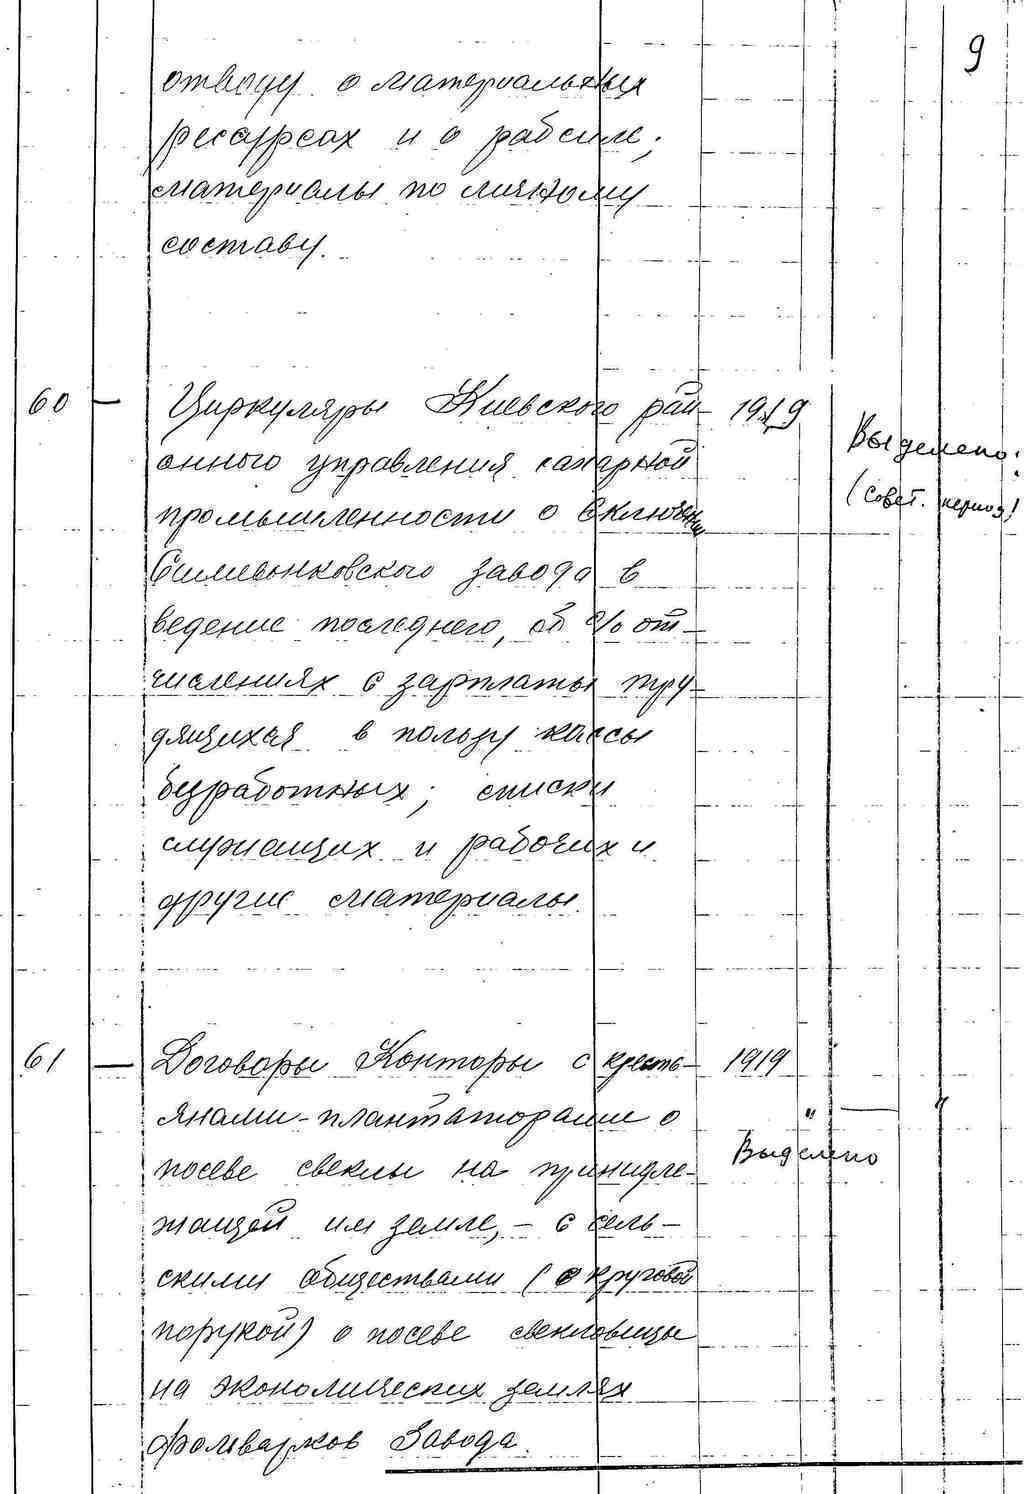 9
отводу о материальных
ресурсах и о рабсиле;
материалы по личному
составу.
60 — Циркуляры Киевского рай- 1919
онного управления сахарной Выделено:
промышленности о включении (совет. период)
завода в
ведение последнего, об % от-
числениях с зарплаты тру-
дящихся в пользу кассы
безработных; списки
служащих и рабочих и
другие материалы.
61 — Договоры Конторы с кресть- 1919
янами-плантаторами о " — "
посеве свеклы на принадле- Выделено
жащей им земле, - с сель-
скими обществами (с круговой
порукой) о посеве свекловицы
на экономических землях
фольварков Завода.